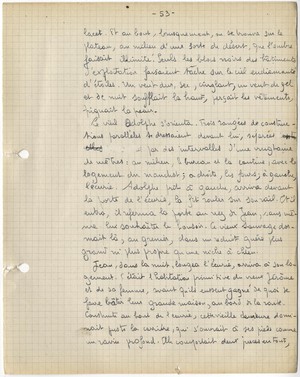 - 53 -
lacet. Et au bout, brusquement, on se trouva sur le
plateau, au milieu d'une sorte de désert, que l'ombre
faisait illimité. Seuls les blocs noirs des bâtiments
d'exploitation faisaient tache sur le ciel endiamanté
d'étoiles. Un vent dur, sec, cinglant, un vent de gel
et de nuit soufflait là-haut, perçait les vêtements,
piquait la peau.
Le vieil Adolphe s'orienta. Trois rangées de construc-
tions parallèles se dressaient devant lui, séparées
par des intervalles d'une vingtaine
de mètres: au milieu, le bureau et la cantine, avec le
logement du ; à droite, les fours; à gauche,
l'écurie. Adolphe prit à gauche, arriva devant
la porte de l'écurie, la fit rouler sur son rail. Il
entra, referma la porte au nez de Jean, sans même
lui souhaiter le bonsoir. Le vieux sauvage dor-
mait là, au grenier, dans un réduit guère plus
grand ni plus propre qu'une niche à chien.
Jean, dans la nuit, longea l'écurie, arriva à son lo-
gement. C'était l'habitation primitive du vieux Jérôme
et de sa femme, avant qu'ils eussent gagné de quoi se
faire bâtir leur grande maison, au bord de la route.
Construite au bout de l'écurie, cette vieille demeure domi-
nait juste la carrière, qui s'ouvrait à ses pieds comme
un ravin profond. Elle comportait deux pièces en tout,